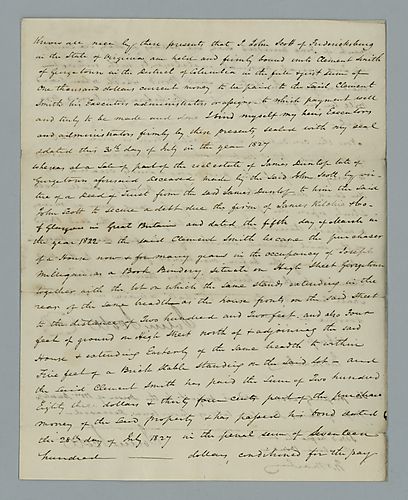 Know all men by these presents that I John Scott of Fredericksburg
in the State of Virginia am held and firmly bound unto Clement Smith
of Georgetown in the District of Columbia in the full & just Sum of
One thousand dollars current money to be paid to the Said Clement
Smith his Executors administrators or assigns to which payment well
and truly to be made and done I bind myself my heirs Executors
and administrators firmly by these presents sealed with my seal
& dated this 30th day of July in the year 1827
Whereas at a Sale of part of the real estate of James Dunlop late of
Georgetown aforesaid deceased made by the Said John Scott by vir-
tue of a deed of Trust from the said James Dunlop to him the Said
John Scott to secure a debt due the firm of James Ritchie & Co
of Glasgow in Great Britain and dated the fifth day of March in
the year 1822 - the said Clement Smith became the purchaser
of a House now & for many years in the occupancy of Joseph
Milligan as a Book Bindery, situate on High Street Georgetown
together with the lot on which the same Stands extending in the
rear of the same breadth as the house fronts on the said Street
to the distance of Two hundred and Two feet, and also Four
feet of ground on High Street north of & adjoining the said
House & extending Easterly of the same breadth to within
Five feet of a Brick Stable Standing on the said lot - and
the Said Clement Smith has paid the Sum of Two hundred
Eighty dollars & thirty four cents part of the purchase
money of the Said property & has passed his bond dated
the 28th day of July 1827 in the penal sum of Seventeen
hundred dollars, conditioned for the pay